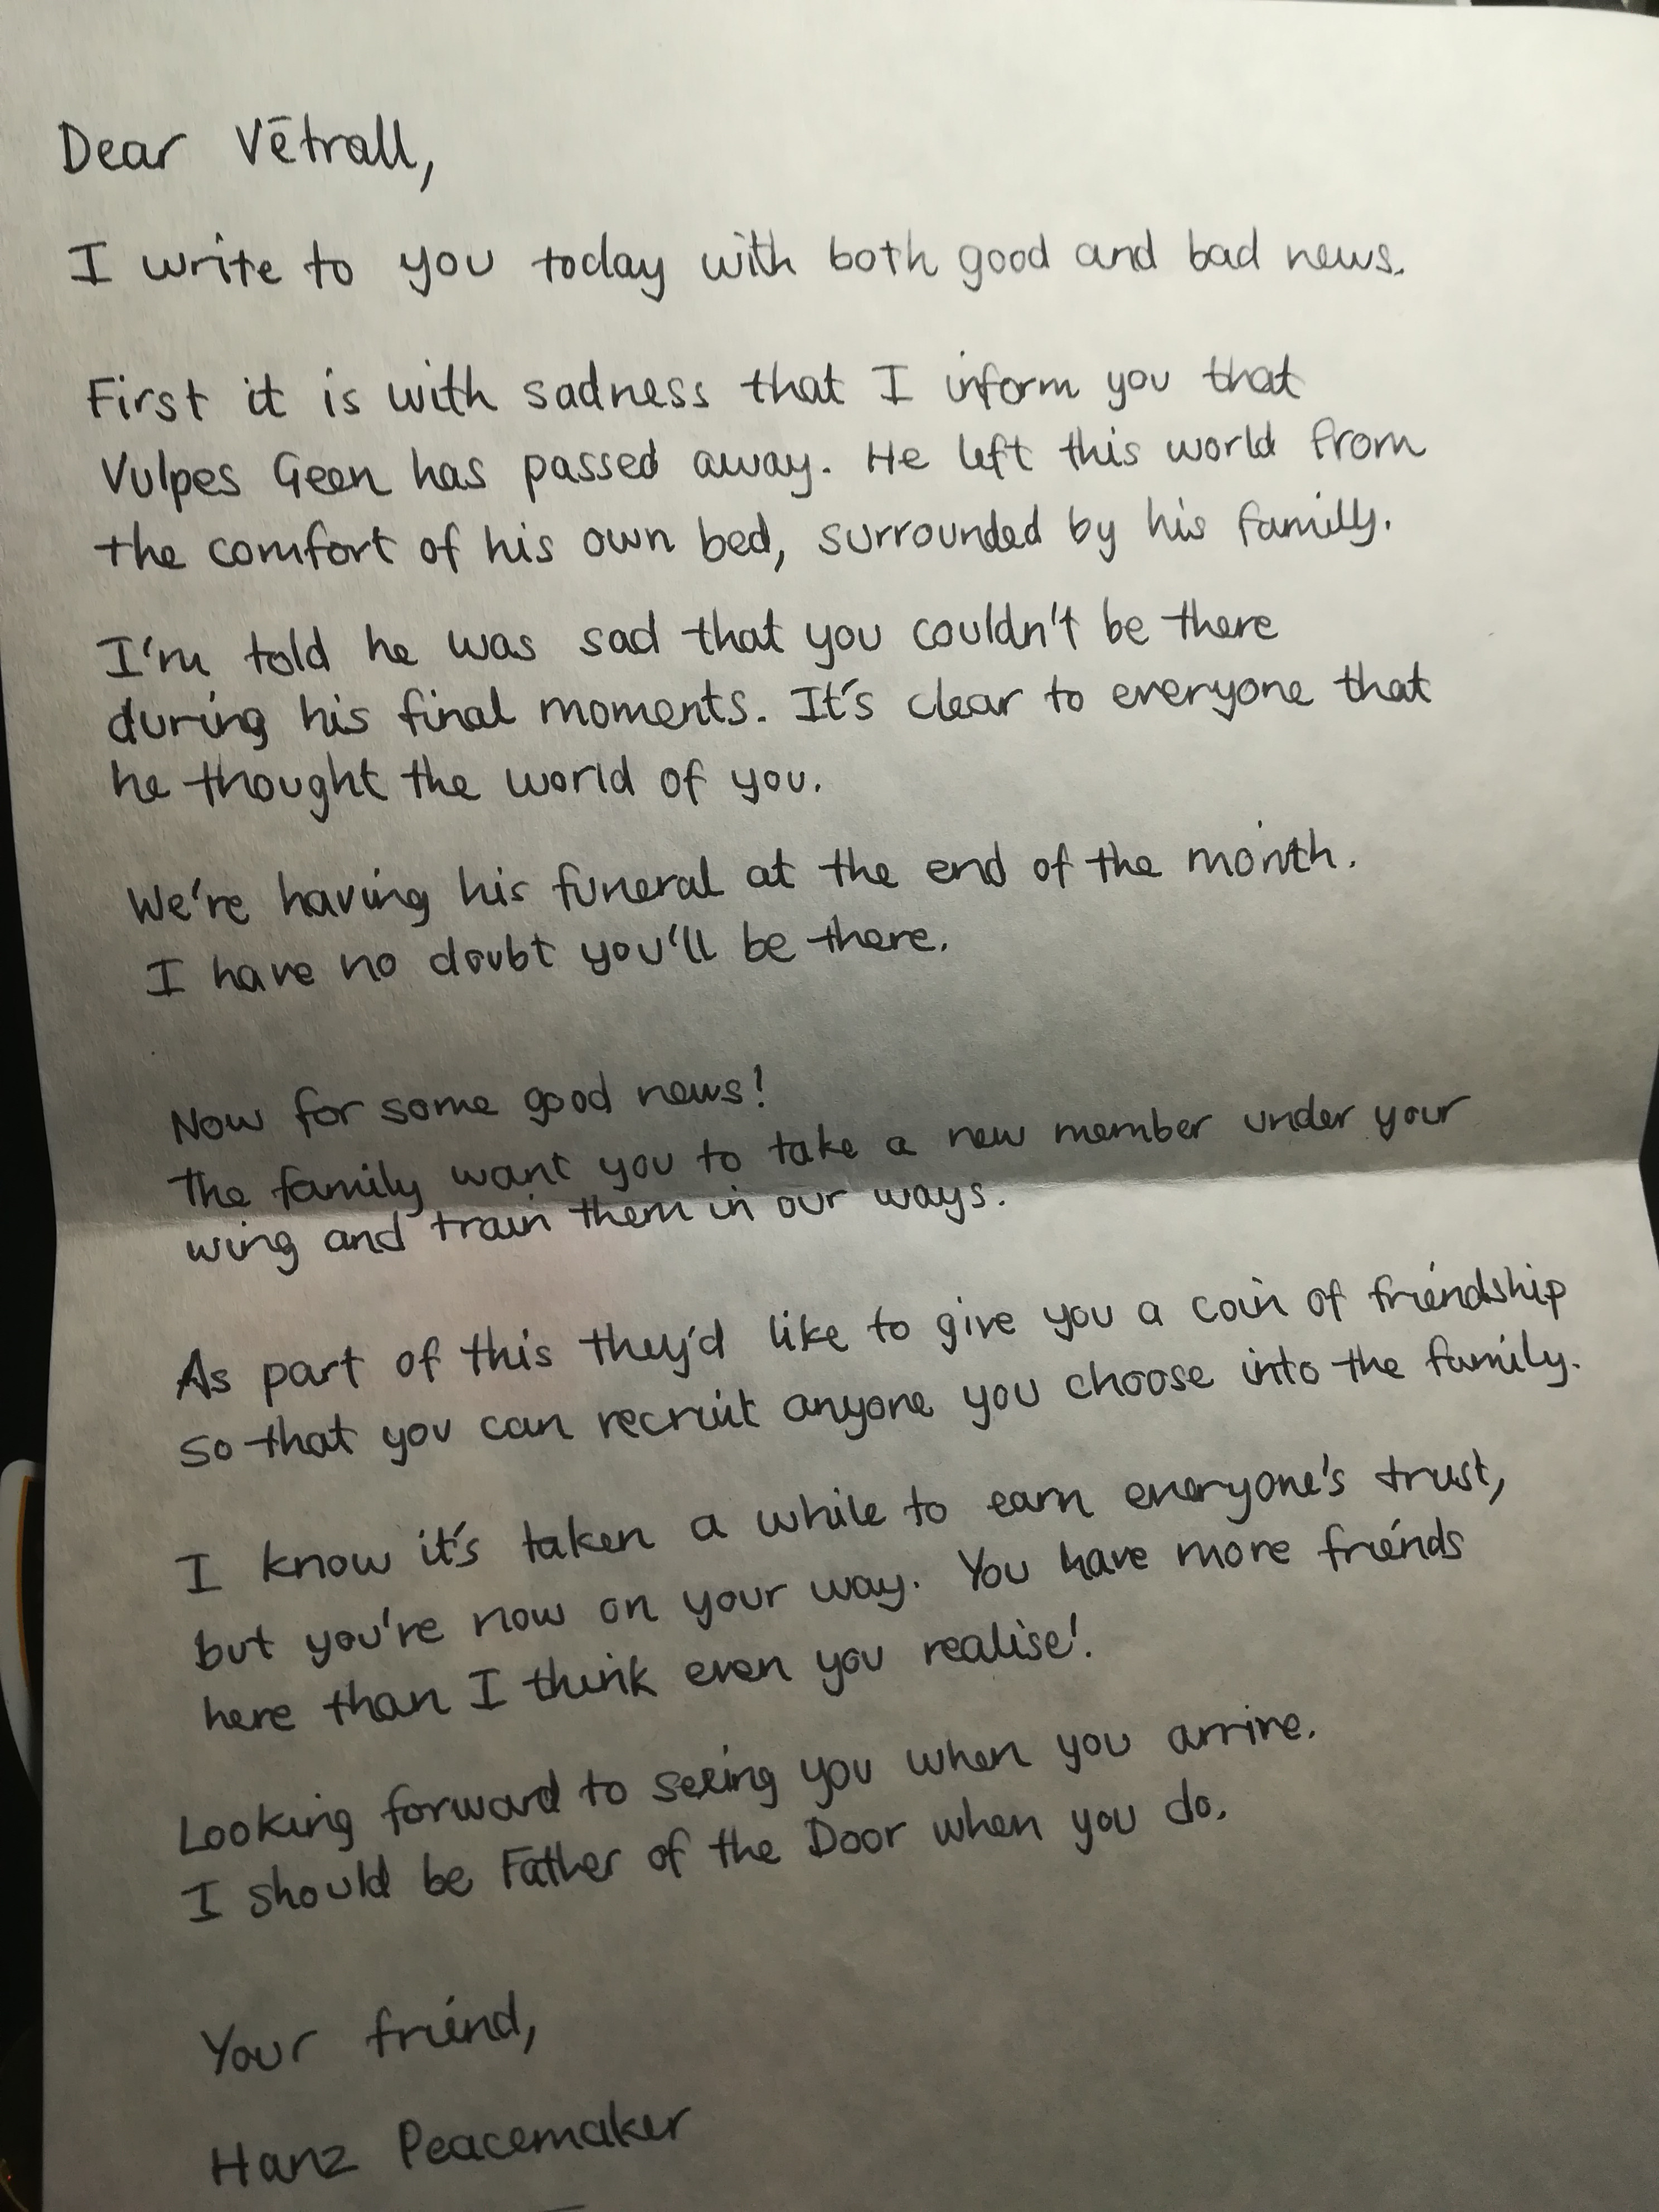 Dear Vētrall,
I write to you today with both good and bad news.
First it is with sadness that I inform you that
Vulpes Geen has passed away. He left this world from
the comfort of his own bed, surrounded by his family.
I'm told he was sad that you couldn't be there
during his final moments. It's clear to everyone that
he thought the world of you.
We're having his funeral at the end of the month.
I have no doubt you'll be there.
Now for some good news!
The family want you to take a new member under your
wing and train them in our ways.
As part of this they'd like to give you a coin of friendship
so that you can recruit anyone you choose into the family.
I know it's taken a while to earn everyone's trust,
but you're now on your way. You have more friends
here than I think even you realise!
Looking forward to seeing you when you arrive.
I should be Father of the Door when you do.
Your friend,
Hanz Peacemaker